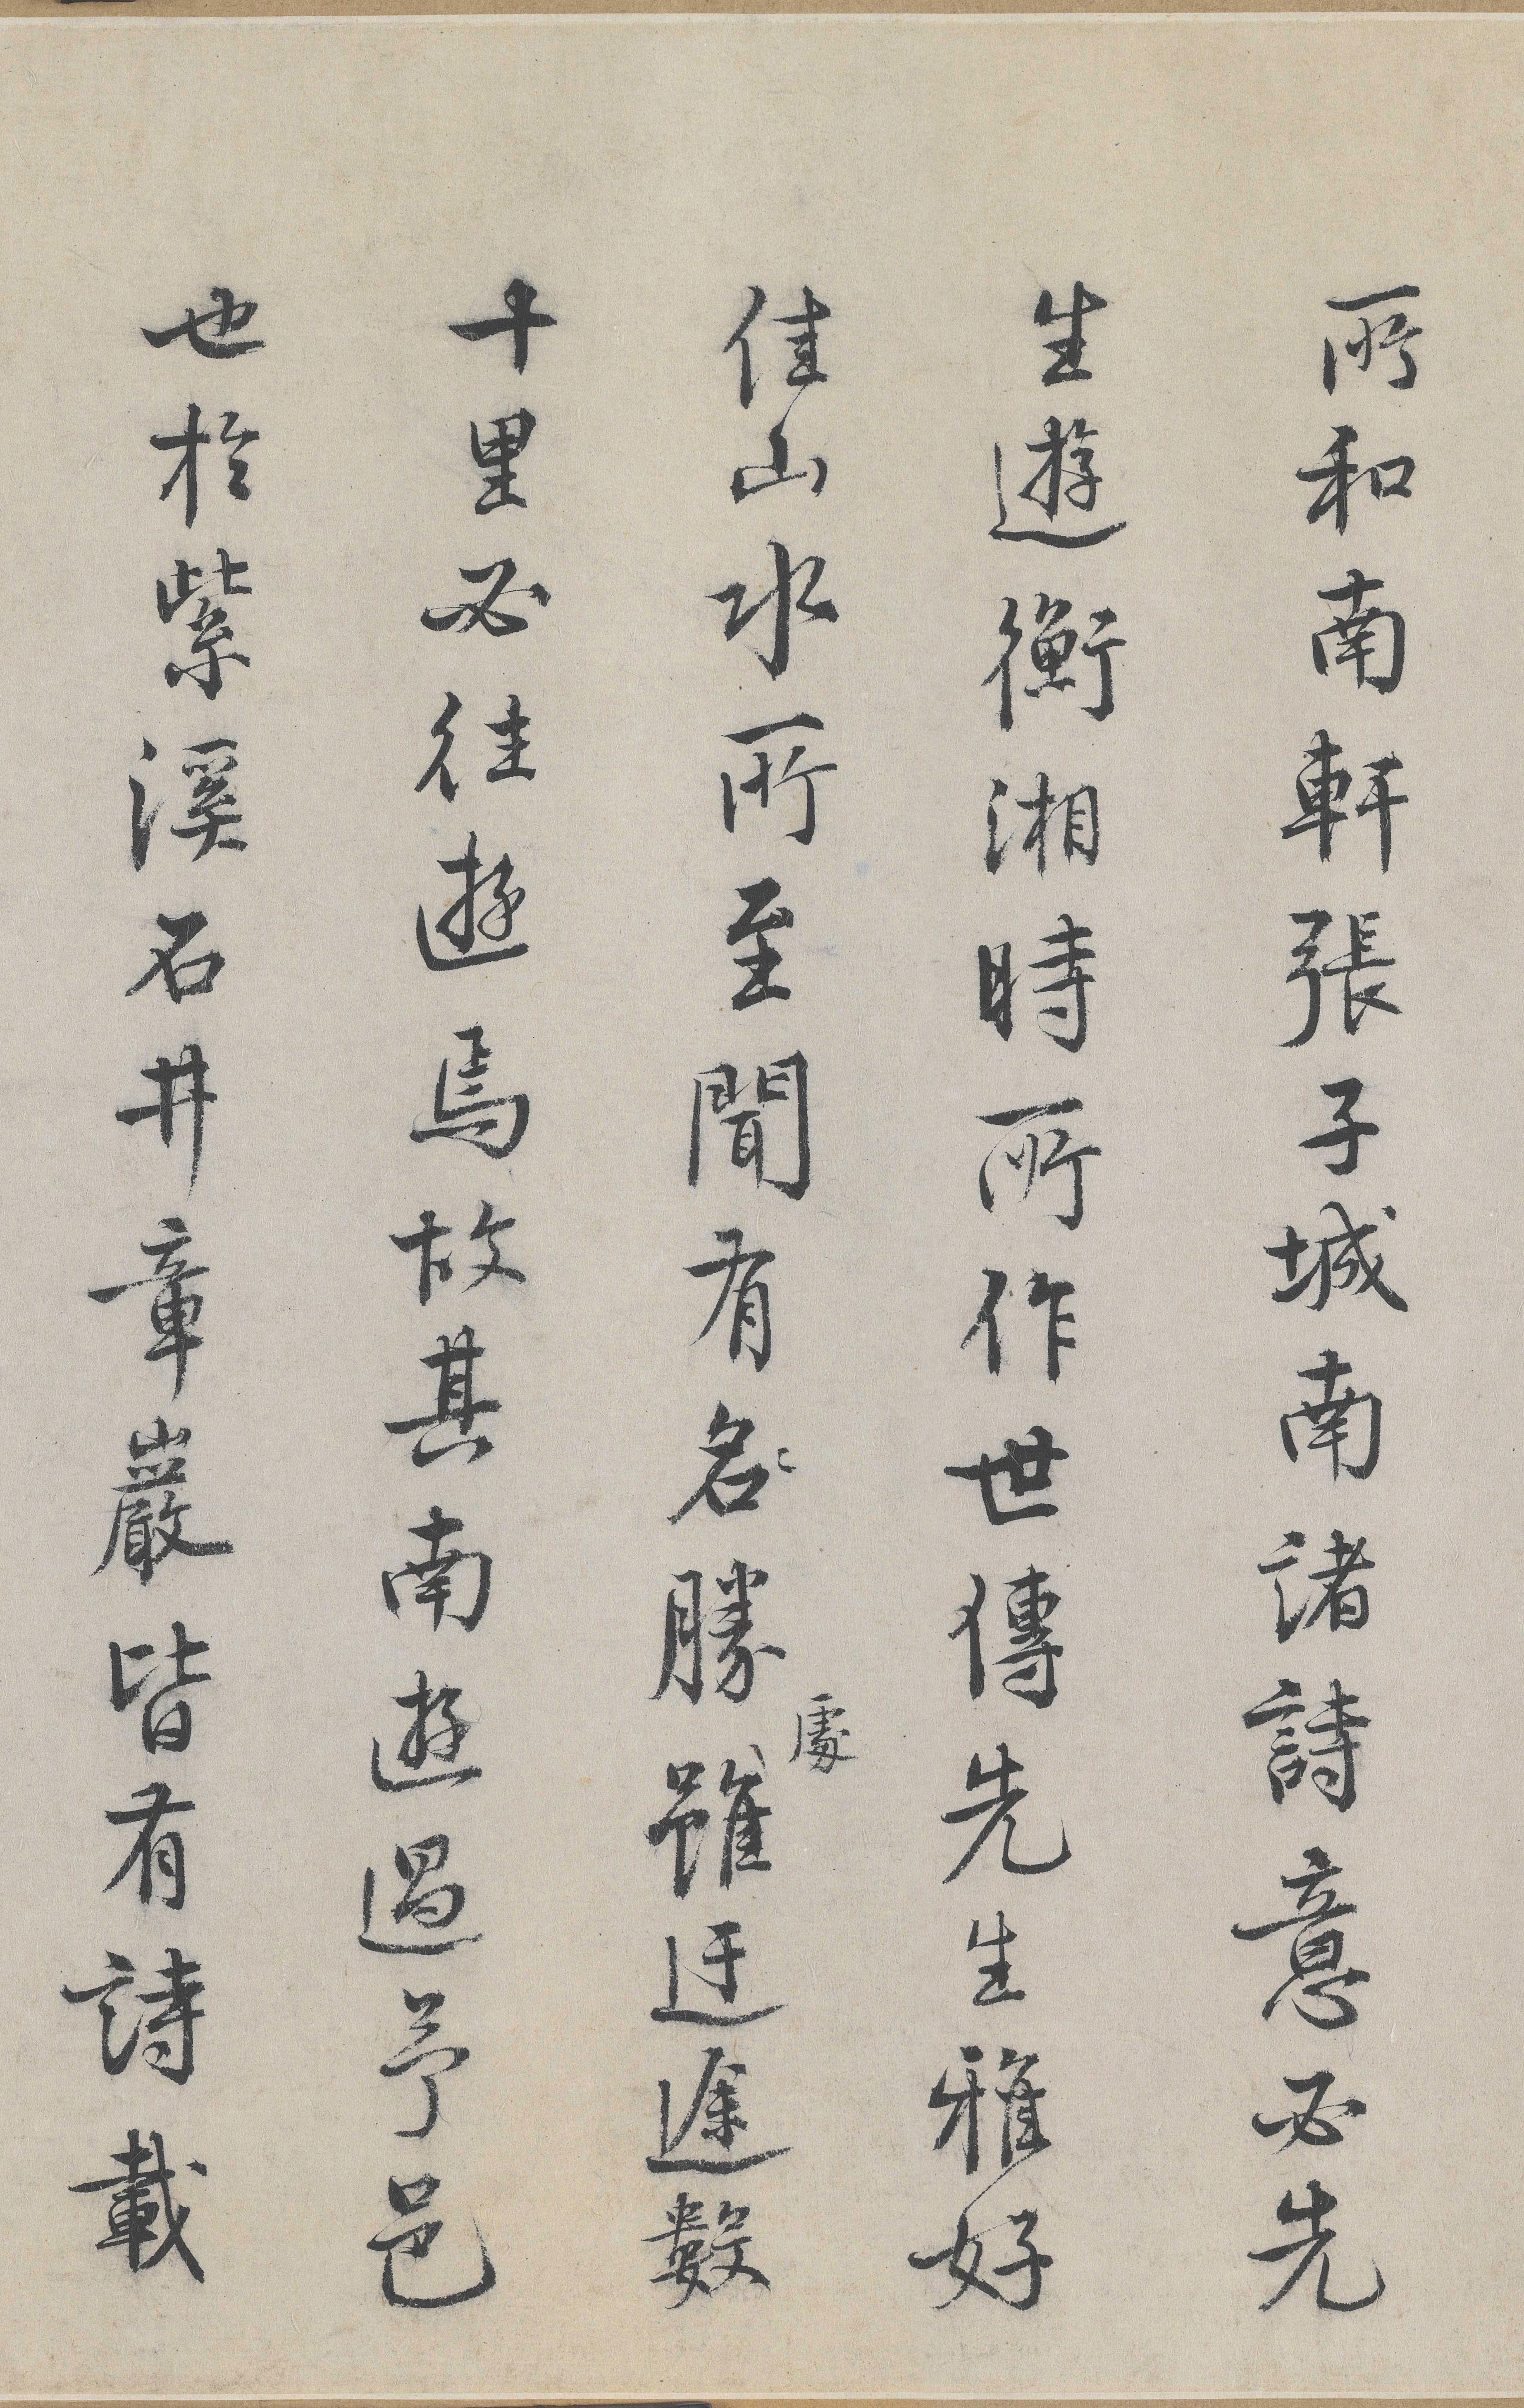 所和南軒張子城南諸詩意必先
生遊衡湘時所作世傳先生雅好
佳山水所至聞有名勝處雖迂途數
十里必往遊焉故其南遊過予邑
也於紫溪石井章巖皆有詩載